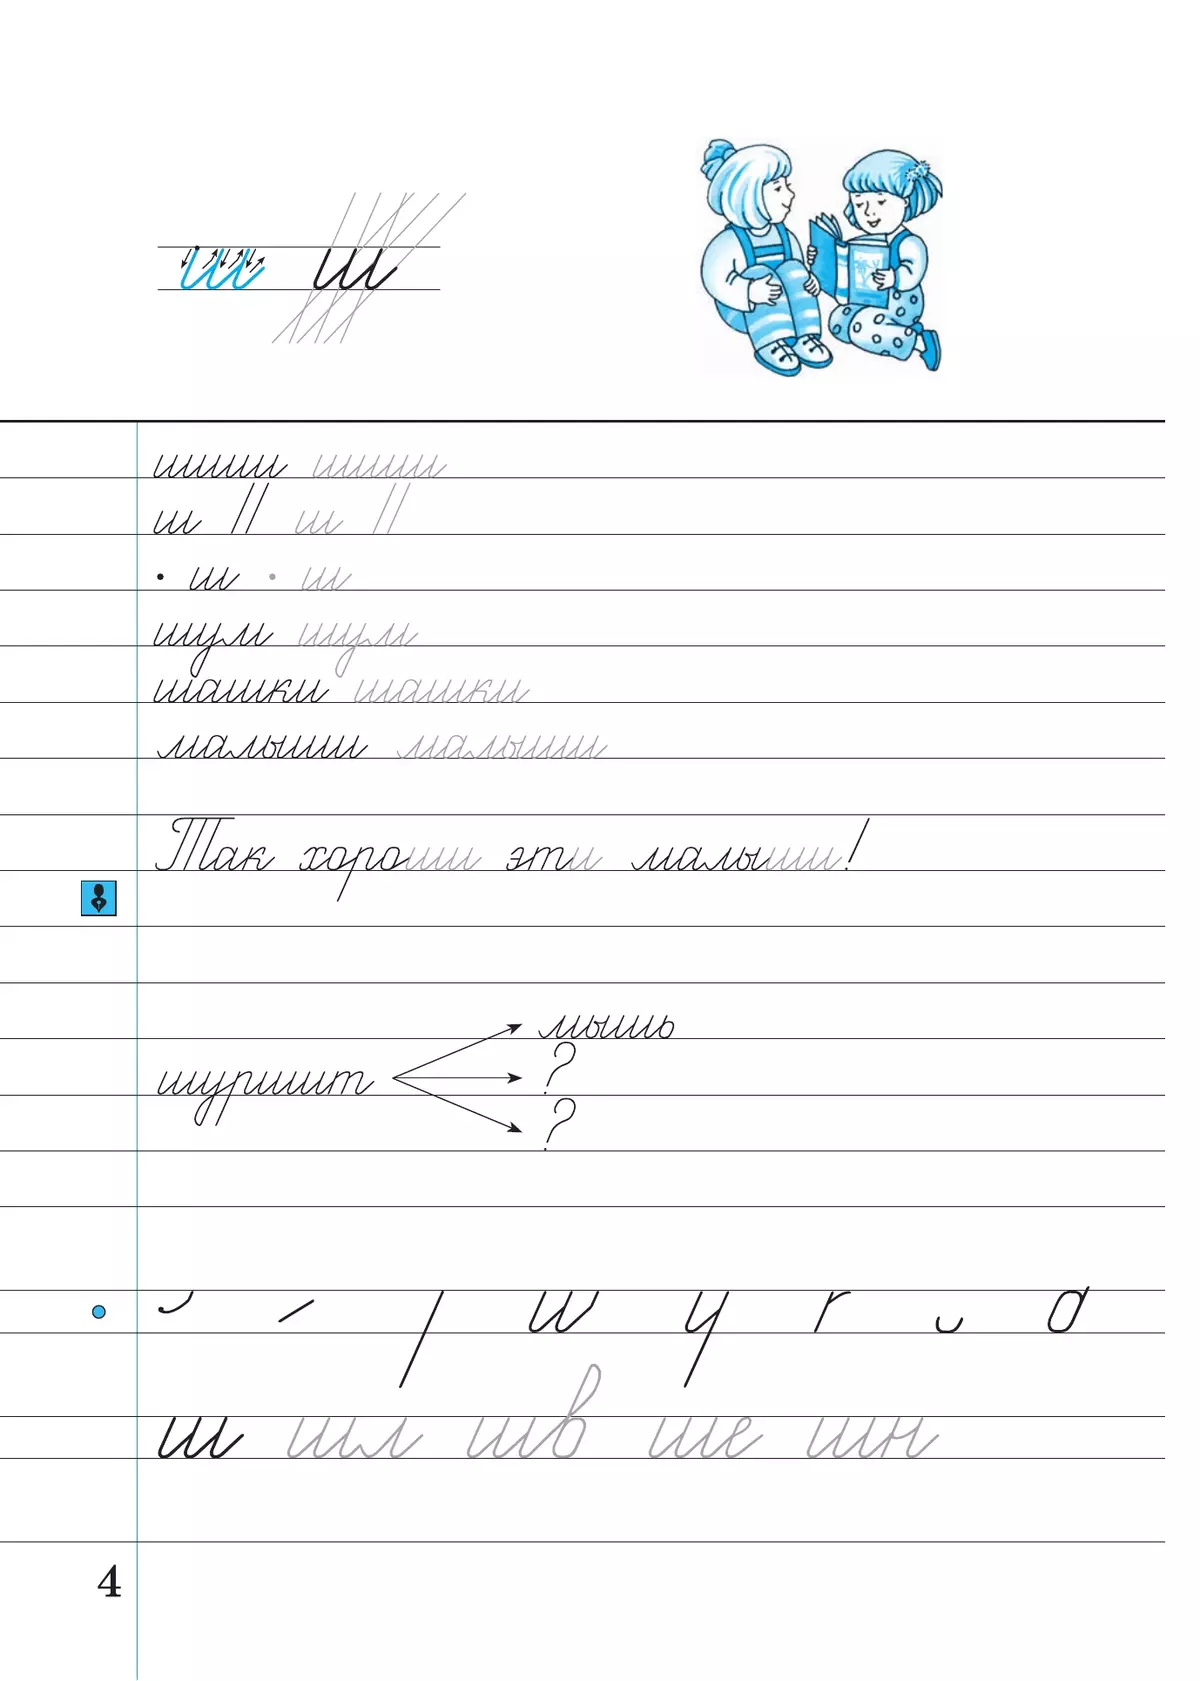 ш ш
ш || ш ||
• ш • ш
шум шум
шашки шашки
малыши малыши
Так хороши эти малыши!
мышь
шуршит ?
?
ш шл шв ше шн
4